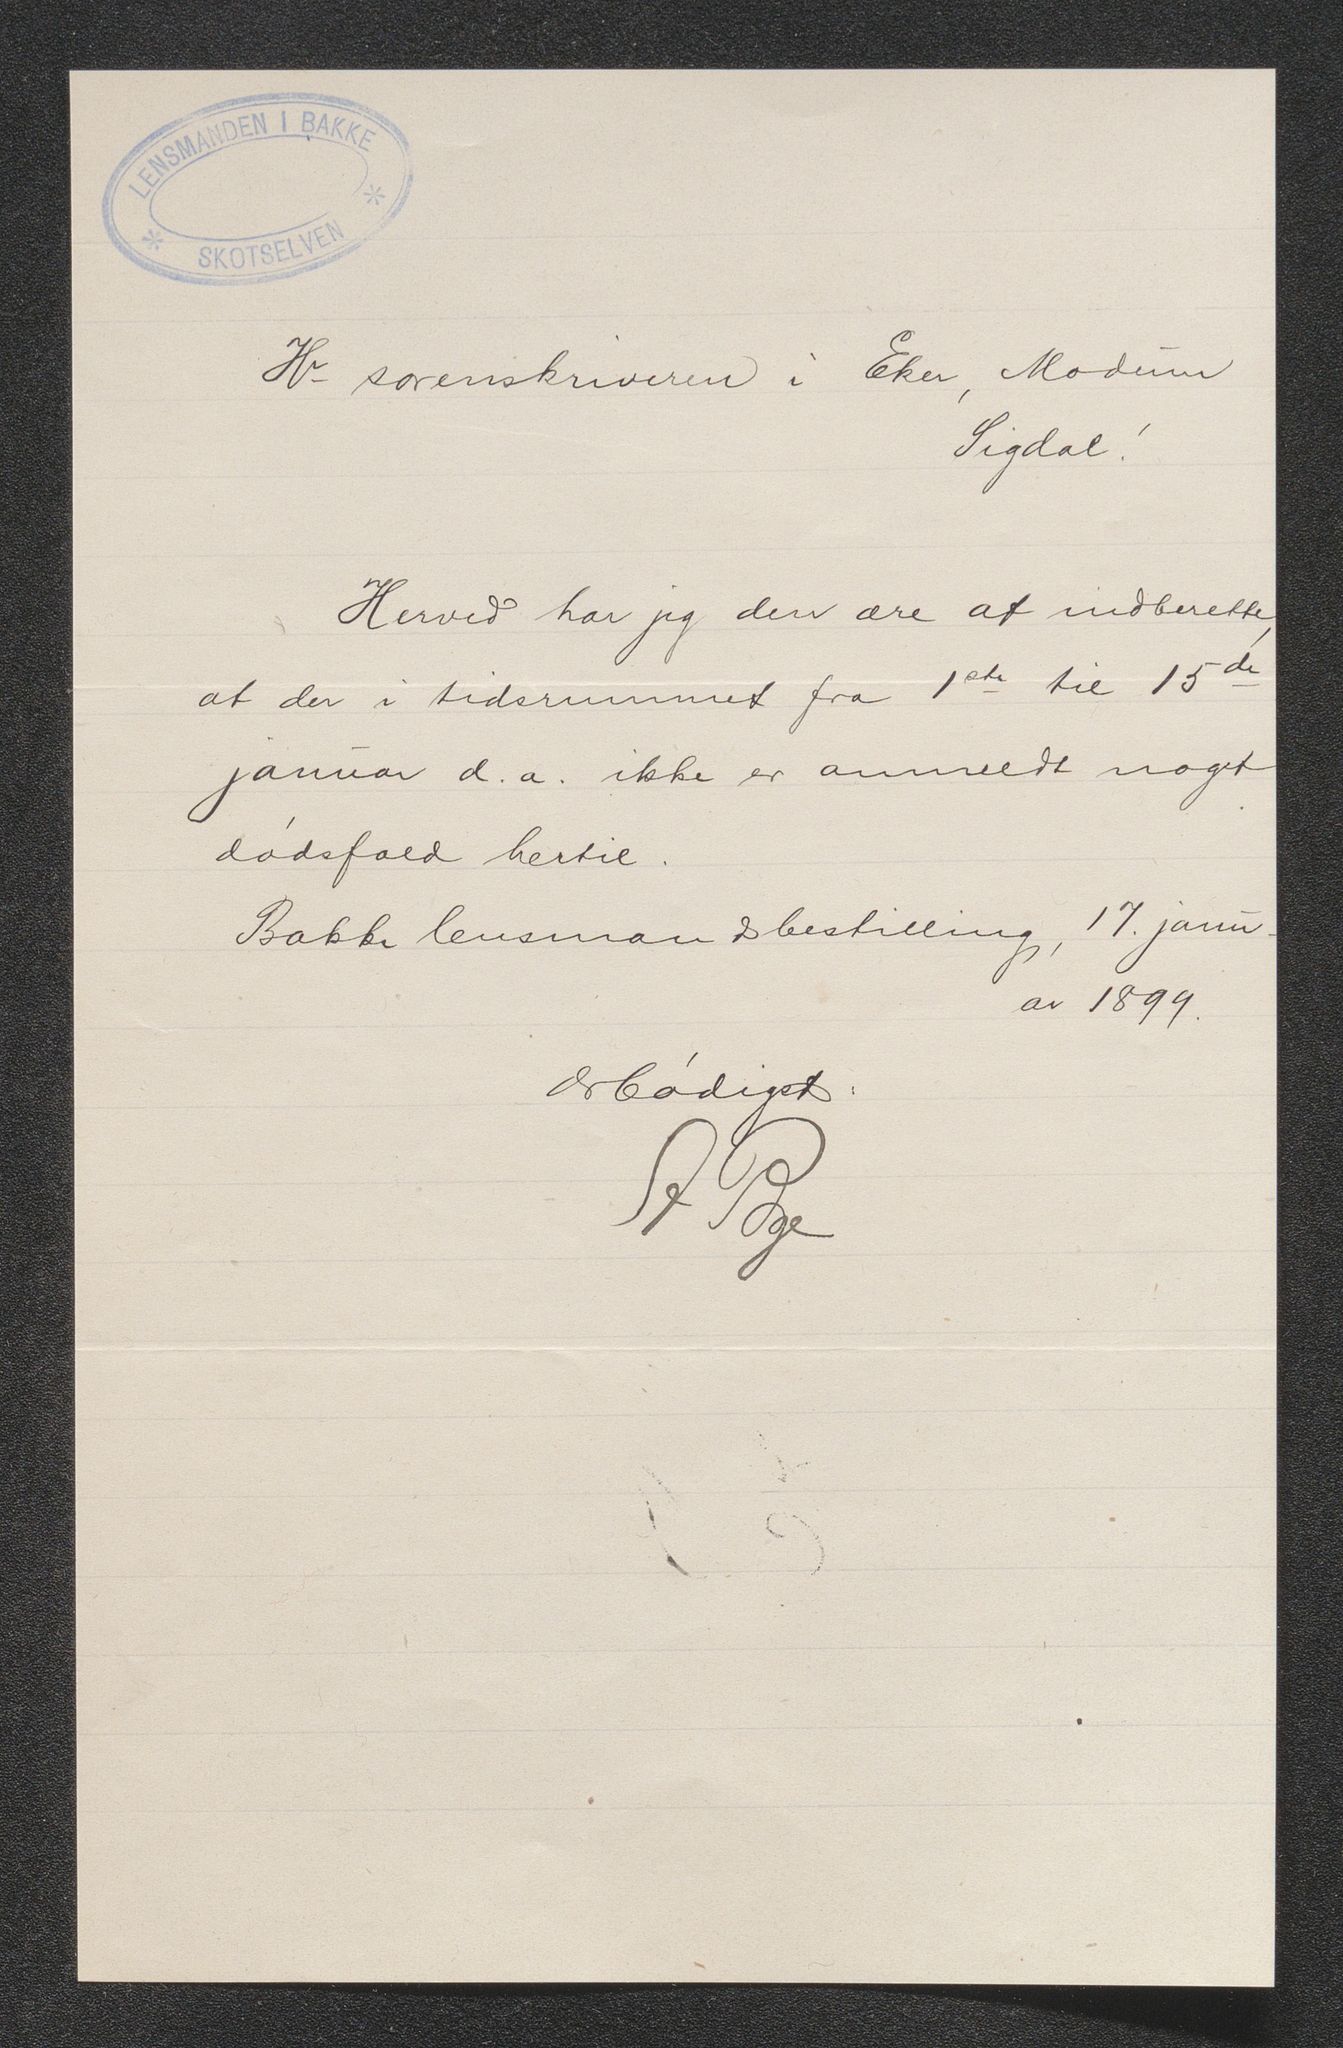 LENSMANDEN I BAKKE
SKOTSELVEN
Hr sorenskriveren i Eker, Modum
Sigdal!
Herved har jeg den ære at indberette,
at der i tidsrummet fra 1ste til 15de
januar d. a. ikke er anmeldt noget
dødsfald hertil.
Bakke lensmandsbestilling, 17. janu-
ar 1899.
Ærbødigst: